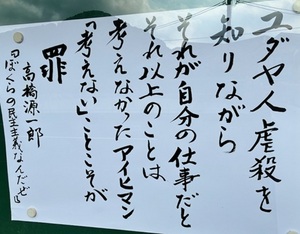 ユダヤ人虐殺を
知りながら
それが自分の仕事だと
それ以上のことは
考えなかったアイヒマン
「考えない」ことこそが
罪
高橋源一郎
『ぼくらの民主主義なんだぜ』